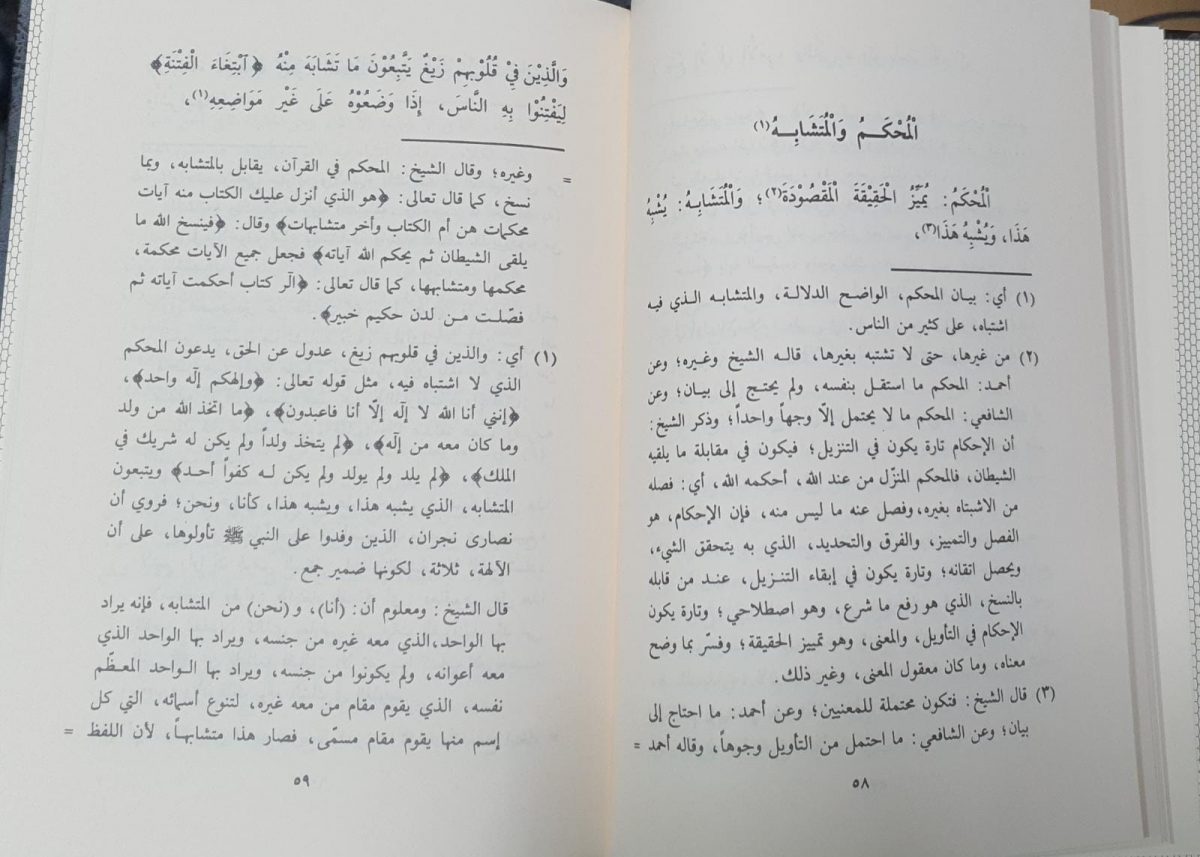 الْمُحْكَمُ وَالْمُتَشَابِهُ(١)
الْمُحْكَمُ: يُمَيِّزُ الْحَقِيقَةَ الْمَقْصُودَةَ(٢)؛ وَالْمُتَشَابِهُ: يُشْبِهُ
هَذَا، وَيُشْبِهُ هَذَا(٣)،
(١) أي: بيان المحكم، الواضح الدلالة، والمتشابه الذي فيه
اشتباه، على كثير من الناس.
(٢) من غيرها، حتى لا تشتبه بغيرها، قاله الشيخ وغيره؛ وعن
أحمد: المحكم ما استقل بنفسه، ولم يحتج إلى بيان؛ وعن
الشافعي: المحكم ما لا يحتمل إلّا وجهاً واحداً؛ وذكر الشيخ:
أن الإحكام تارة يكون في التنزيل؛ فيكون في مقابلة ما يلقيه
الشيطان، فالمحكم المنزّل من عند الله، أحكمه الله، أي: فصله
من الاشتباه بغيره، وفصل عنه ما ليس منه، فإن الإحكام، هو
الفصل والتمييز، والفرق والتحديد، الذي به يتحقق الشيء،
ويحصل اتقانه؛ وتارة يكون في إبقاء التنزيل، عند من قابله
بالنسخ، الذي هو رفع ما شرع، وهو اصطلاحي؛ وتارة يكون
الإحكام في التأويل، والمعنى، وهو تمييز الحقيقة؛ وفسّر بما وضح
معناه، وما كان معقول المعنى، وغير ذلك.
(٣) قال الشيخ: فتكون محتملة للمعنيين؛ وعن أحمد: ما احتاج إلى
بيان؛ وعن الشافعي: ما احتمل من التأويل وجوهاً، وقاله أحمد =
٥٨
وَالَّذِيْنَ فِيْ قُلُوْبِهِمْ زَيْغٌ يَتَّبِعُوْنَ مَا تَشَابَهَ مِنْهُ ﴿ٱبْتِغَاءَ الْفِتْنَةِ﴾
لِيَفْتِنُوْا بِهِ النَّاسَ، إِذَا وَضَعُوْهُ عَلَى غَيْرِ مَوَاضِعِهِ(١)،
= وغيره؛ وقال الشيخ: المحكم في القرآن، يقابل بالمتشابه، وبما
نسخ، كما قال تعالى: ﴿هو الذي أنزل عليك الكتاب منه آيات
محكمات هن أم الكتاب وأخر متشابهات﴾ وقال: ﴿فينسخ الله ما
يلقى الشيطان ثم يحكم الله آياته﴾ فجعل جميع الآيات محكمة،
محكمها ومتشابهها، كما قال تعالى: ﴿الٓر كتاب أحكمت آياته ثم
فصّلت من لدن حكيم خبير﴾.
(١) أي: والذين في قلوبهم زيغ، عدول عن الحق، يدعون المحكم
الذي لا اشتباه فيه، مثل قوله تعالى: ﴿وإلهكم إلٰه واحد﴾،
﴿إنني أنا الله لا إلٰه إلّا أنا فاعبدون﴾، ﴿ما اتخذ الله من ولد
وما كان معه من إلٰه﴾، ﴿لم يتخذ ولداً ولم يكن له شريك في
الملك﴾، ﴿لم يلد ولم يولد ولم يكن له كفواً أحد﴾ ويتبعون
المتشابه، الذي يشبه هذا، ويشبه هذا، كأنا، ونحن؛ فروي أن
نصارى نجران، الذين وفدوا على النبي ﷺ تأولوها، على أن
الآلهة، ثلاثة، لكونها ضمير جمع.
قال الشيخ: ومعلوم أن: (أنا)، و (نحن) من المتشابه، فإنه يراد
بها الواحد، الذي معه غيره من جنسه، ويراد بها الواحد الذي
معه أعوانه، ولم يكونوا من جنسه، ويراد بها الواحد المعظّم
نفسه، الذي يقوم مقام من معه غيره، لتنوع أسمائه، التي كل
إسم منها يقوم مقام مسمّى، فصار هذا متشابهاً، لأن اللفظ =
٥٩